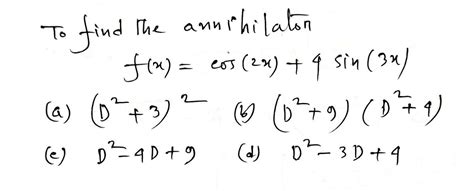 To find the annihilator
f(x) = cos(2x) + 4 sin(3x)
(a) (D²+3)² (b) (D²+9) (D²+4)
(c) D²-4D+9 (d) D²-3D+4